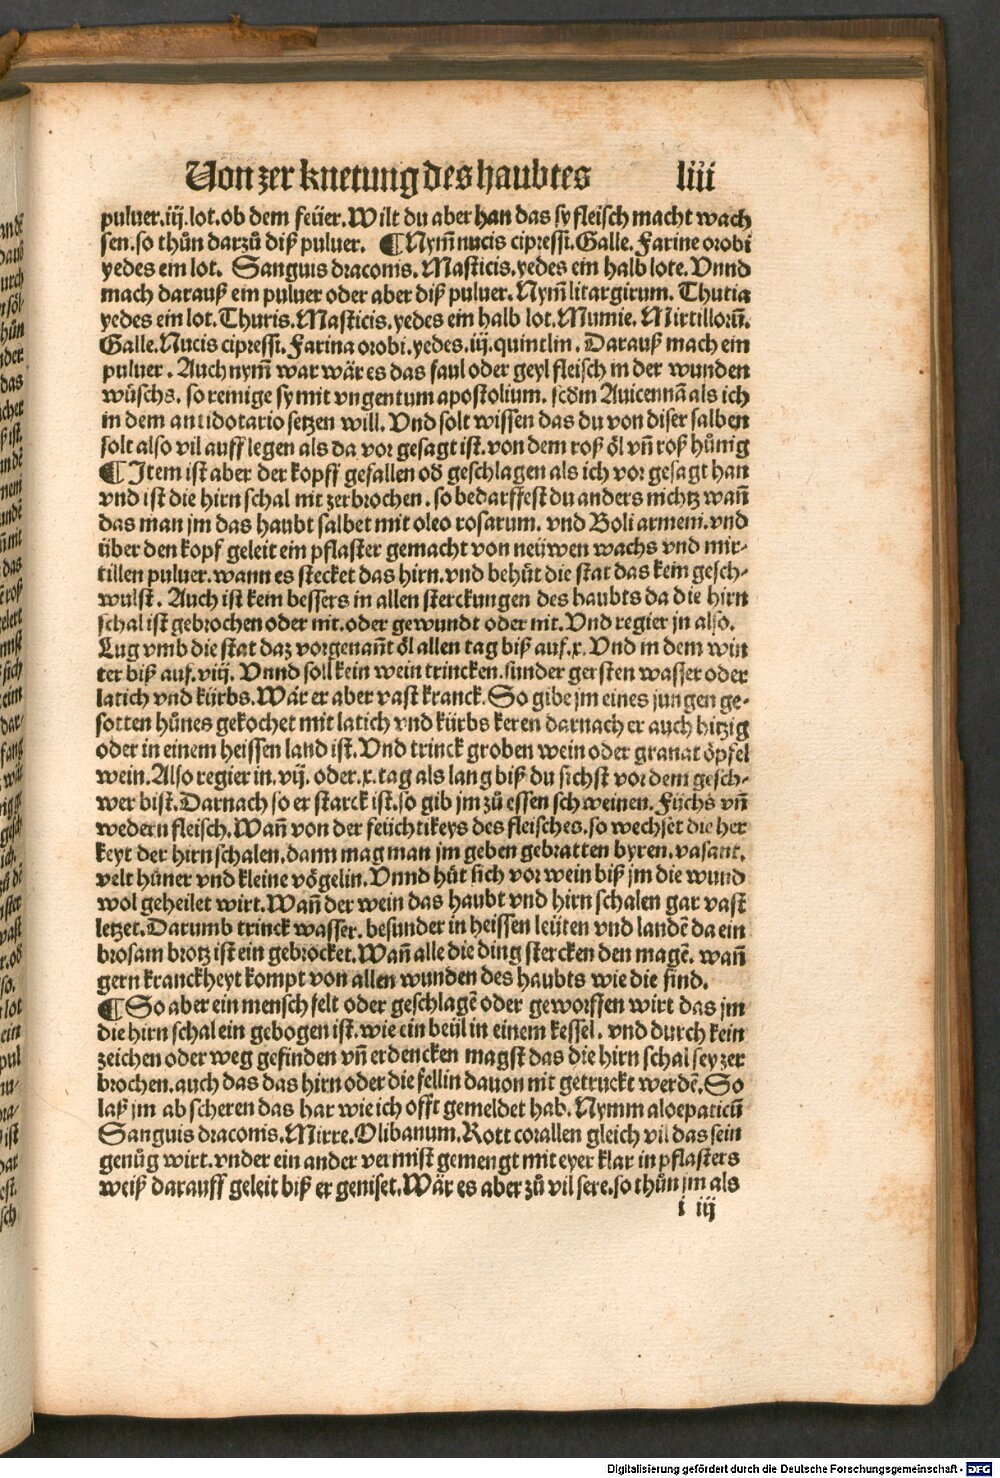 Von zer knetung des haubtes liii
puluer.iij.lot.ob dem feüer.Wilt du aber han das sy fleisch macht wach
sen.so thůn darzů diß puluer. ¶Nym̃ nucis cipressi.Galle.Farine orobi
yedes ein lot. Sanguis draconis.Masticis.yedes ein halb lote.Vnnd
mach darauß ein puluer oder aber diß puluer.Nym̃ litargirum. Thutia
yedes ein lot.Thuris.Masticis.yedes ein halb lot.Mumie.Mirtilloꝝ̃.
Galle.Nucis cipressi.Farina orobi.yedes.iij.quintlin. Darauß mach ein
puluer. Auch nym̃ war wär es das faul oder geyl fleisch in der wunden
wůschs. so reinige sy mit vngentum apostolium. scďm Auicennã als ich
in dem antidotario setzen will. Vnd solt wissen das du von diser salben
solt also vil auff legen als da vor gesagt ist.von dem roß öl vñ roß hünig
¶Item ist aber der kopff gefallen oď geschlagen als ich vor gesagt han
vnd ist die hirn schal nit zerbrochen. so bedarffest du anders nichtz wañ
das man jm das haubt salbet mit oleo rosarum. vnd Boli armeni.vnd
über den kopf geleit ein pflaster gemacht von neüwen wachs vnd mir-
tillen puluer.wann es stecket das hirn.vnd behüt die stat das kein gesch-
wulst. Auch ist kein bessers in allen sterckungen des haubts da die hirn
schal ist gebrochen oder nit.oder gewundt oder nit. Vnd regier jn also.
Lug vmb die stat daz vorgenañt öl allen tag biß auf.x. Vnd in dem win
ter biß auf.viij. Vnnd soll kein wein trincken.sunder gersten wasser oder
latich vnd kürbs.Wär er aber vast kranck.So gibe jm eines jungen ge-
sotten hůnes gekochet mit latich vnd kürbs keren darnach er auch hitzig
oder in einem heissen land ist. Vnd trinck groben wein oder granat öpfel
wein.Also regier in.vij. oder.x.tag als lang biß du sichst vor dem gesch-
wer bist.Darnach so er starck ist.so gib jm zů essen schweinen. Füchs vñ
wedern fleisch.Wañ von der feüchtikeys des fleisches.so wechset die her
keyt der hirn schalen.dann mag man jm geben gebratten byren.vasant.
velt hüner vnd kleine vögelin. Vnnd hüt sich vor wein biß jm die wund
wol geheilet wirt.Wañ der wein das haubt vnd hirn schalen gar vast
letzet.Darumb trinck wasser. besunder in heissen leüten vnd landẽ da ein
brosam brotz ist ein gebrocket.Wañ alle die ding stercken den magẽ. wañ
gern kranckheyt kompt von allen wunden des haubts wie die sind.
¶So aber ein mensch felt oder geschlagẽ oder geworffen wirt das jm
die hirn schal ein gebogen ist.wie ein beül in einem kessel. vnd durch kein
zeichen oder weg gefinden vñ erdencken magst das die hirn schal sey zer
brochen.auch das das hirn oder die fellin dauon nit getruckt werdẽ.So
laß jm ab scheren das har wie ich offt gemeldet hab. Nymm aloepaticũ
Sanguis draconis.Mirre.Olibanum.Rott corallen gleich vil das sein
genůg wirt.vnder ein ander vermist gemengt mit eyer klar in pflasters
weiß darauff geleit biß er geniset.Wär es aber zů vil sere.so thůn jm als
i iij
Digitalisierung gefördert durch die Deutsche Forschungsgemeinschaft - DFG